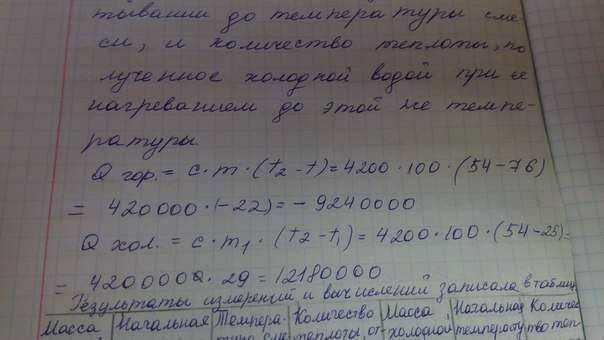 тывании до температуры сме-
си, и количество теплоты, по
лученное холодной водой при ее
нагреванием до этой же темпе-
ратуры.
Q гор. = c · m · (t₂ - t) = 4200 · 100 · (54 - 76)
= 420000 · (-22) = - 9240000
Q хол. = c · m₁ · (t₂ - t₁) = 4200 · 100 · (54 - 25) =
= 4200000 · 29 = 12180000
Результаты измерений и вычислений записала в таблиц
Масса Начальная Темпера- Количество Масса Начальная Количес
теплоты, от- холодной температу тво теп-